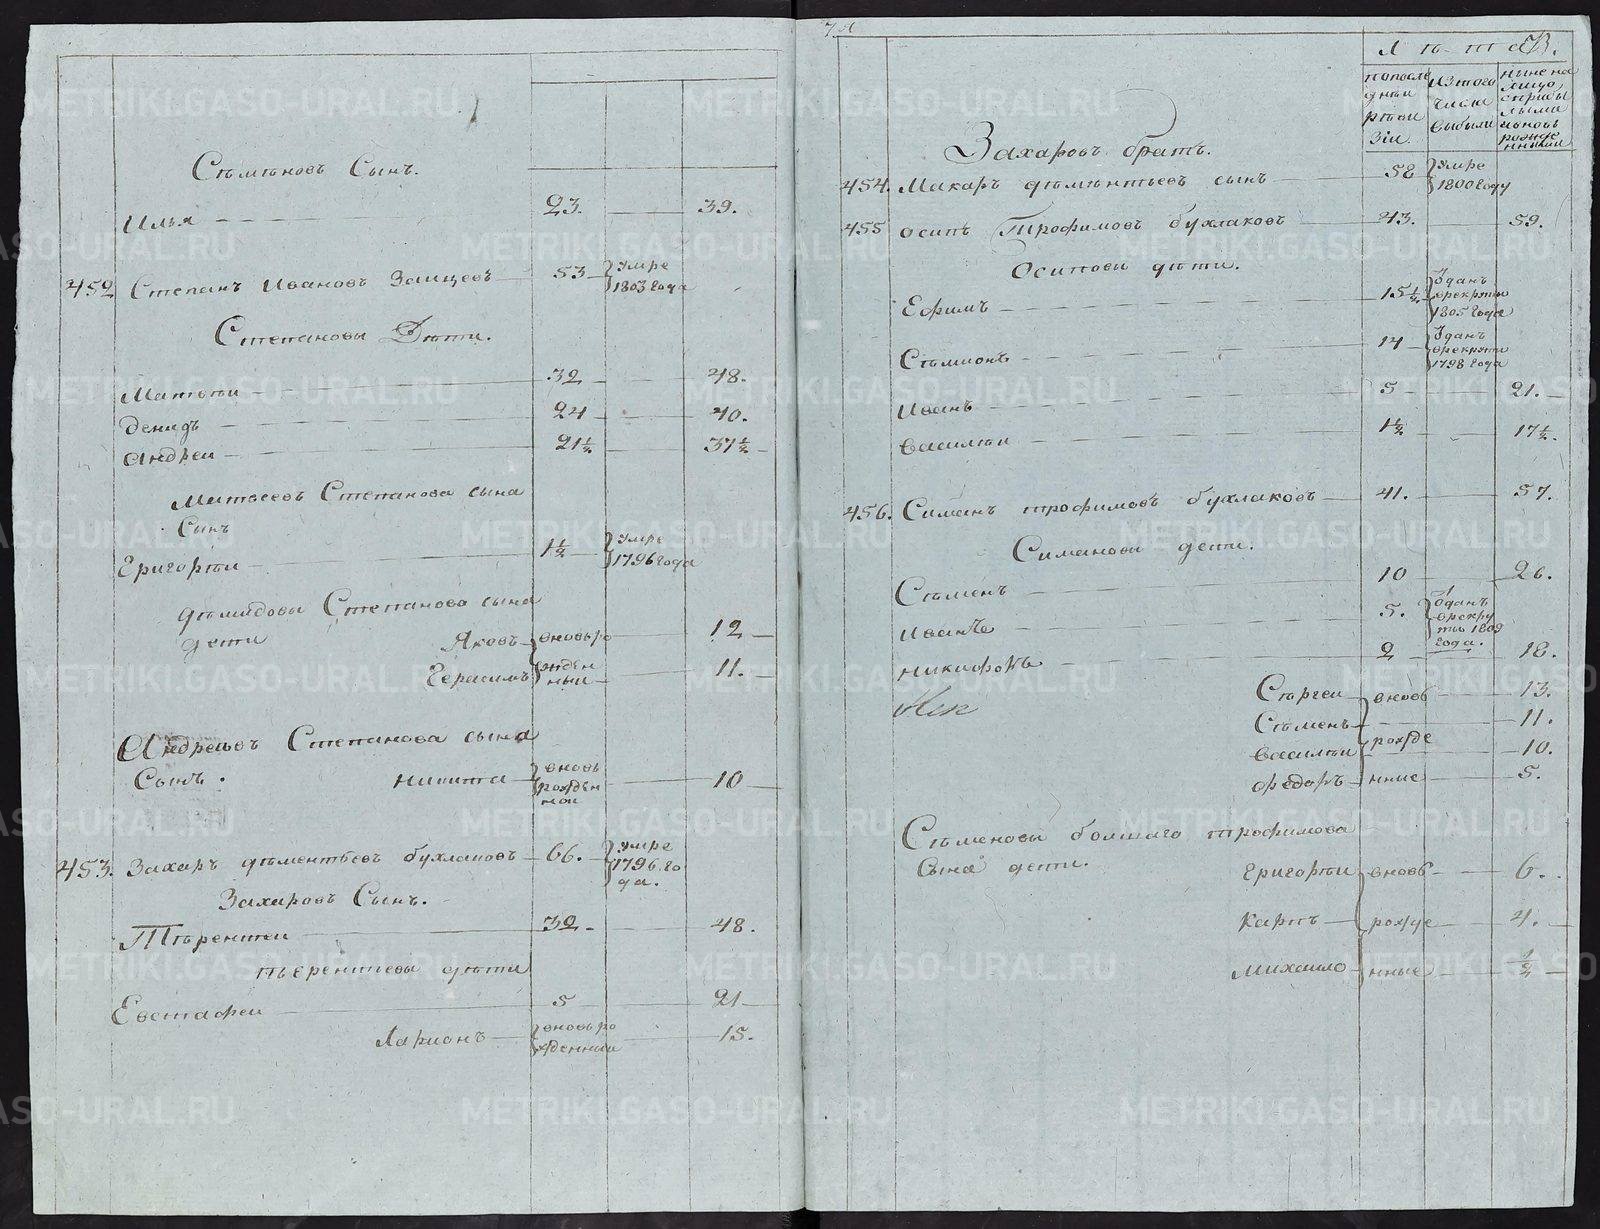 Стьмѣновъ Сынъ.
Илья 23. 39.
452 Степанъ Ивановъ Заицевъ 53 умре
1803 года
Степановы Дѣти.
Матвѣи 32 48.
демидъ 24 40.
Андреи 21½ 37½
Матвеевъ Степанова сына
Сынъ
Григорѣи 1½ умре
1796 года
дѣмидовы Степанова сына
дети Яковъ вновьро 12
Герасимъ жден
ныи 11.
Андреевъ Степанова сына
Сынъ. никита вновь
рожден
нои 10
453. Захаръ дѣментьевъ бухлаковъ 66. умре
1796 го
да.
Захаровъ Сынъ.
Тѣрентеи 32 48.
тьерентевы дѣти
Евстафеи 5 21
Ларионъ вновь ро
жденныи 15.
Л ѣ т а В.
попосле
днеи
рѣви
зіи
изтого
числа
выбыли
ныне на
лицо
сприбы
лыми
ивновь
рожде
нными
Захаровъ братъ.
454. Макаръ дѣмѣнтьевъ сынъ 58 умре
1800 году
455 осипъ Трофимовъ бухлаковъ 43. 59.
Осиповы дѣти.
Ефимъ 15½ Одатъ
врекруты
1805 года
Стьмионъ 14 Одатъ
врекруты
1798 года
Иванъ 5 21.
Василѣи 1½ 17½.
456. Симанъ трофимовъ бухлаковъ 41. 57.
Симановы дети.
Стьменъ 10 26.
Иванъ 5. Одатъ
врекру
ты 1809
года.
никифоръ 2 18.
Стьргеи внов 13.
Стьменъ 11.
василѣи рожде 10.
федоръ нные 5.
Стьменовы болшаго трофимова
Сына дети.
Григорѣи внов 6.
Карпъ рожде 4.
михаило нные ½